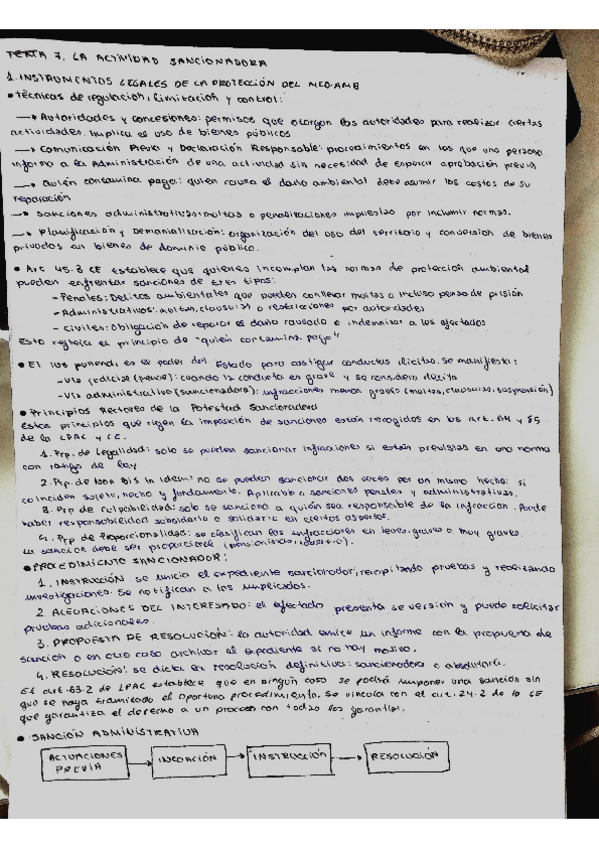 TEMA 7. LA ACTIVIDAD SANCIONADORA
1. INSTRUMENTOS LEGALES DE LA PROTECCIÓN DEL MED.AMB
• Técnicas de regulación, limitación y control:
→ Autoridades y concesiones: permisos que otorgan las autoridades para realizar ciertas
actividades. Implica el uso de bienes públicos
→ Comunicación Previa y Declaración Responsable: procedimientos en los que una persona
informa a la Administración de una actividad sin necesidad de esperar aprobación previa
→ Quién contamina paga: quien causa el daño ambiental debe asumir los costes de su
reparación
→ Sanciones administrativas: multas o penalizaciones impuestas por incumplir normas.
→ Planificación y Demanialización: organización del uso del territorio y conversion de bienes
privados en bienes de dominio público.
• Art 45.3 CE establece que quienes incumplan las normas de protección ambiental
pueden enfrentar sanciones de tres tipos:
- Penales: Delitos ambientales que pueden conllevar multas o incluso penas de prisión
- Administrativos: multas, clausuras o restricciones por autoridades
- Civiles: Obligación de reparar el daño causado e indemnizar a los afectados
Esto refleja el principio de "quien contamina paga"
• El ius ponendi es el poder del Estado para castigar conductas ilícitas. Se manifiesta:
- Vía judicial (penal): cuando la conducta es grave y se considera delito
- Vía administrativa (sancionadora): infracciones menos graves (multas, clausuras, suspensión)
• Principios Rectores de la Potestad Sancionadora
Estos principios que rigen la imposición de sanciones están recogidos en los art. 84 y 85
de la LPAC y CE.
1. Prp. de Legalidad: solo se pueden sancionar infracciones si están previstas en una norma
con rango de ley
2. Prp. de Non Bis In Idem: no se pueden sancionar dos veces por un mismo hecho si
coinciden sujeto, hecho y fundamento. Aplicable a sanciones penales y administrativas.
3. Prp de Culpabilidad: solo se sanciona a quién sea responsable de la infracción. Puede
haber responsabilidad subsidiaria o solidaria en ciertos aspectos.
4. Prp de Proporcionalidad: se clasifican las infracciones en leves, graves o muy graves.
La sanción debe ser proporcional
• PROCEDIMIENTO SANCIONADOR:
1. INSTRUCCIÓN se inicia el expediente sancionador, recopilando pruebas y realizando
investigaciones. Se notifican a los implicados.
2. ALEGACIONES DEL INTERESADO: el afectado presenta su versión y puede solicitar
pruebas adicionales.
3. PROPUESTA DE RESOLUCIÓN: la autoridad emite un informe con la propuesta de
sanción o en otro caso archivar el expediente si no hay motivo.
4. RESOLUCIÓN: se dicta la resolución definitiva: sancionadora o absolutoria.
El art. 63.2 de LPAC establece que en ningún caso se podrá imponer una sanción sin
que se haya tramitado el oportuno procedimiento. Se vincula con el art. 24.2 de la CE
que garantiza el derecho a un proceso con todas las garantías.
• SANCIÓN ADMINISTRATIVA
ACTUACIONES PREVIA → INCOACIÓN → INSTRUCCIÓN → RESOLUCIÓN